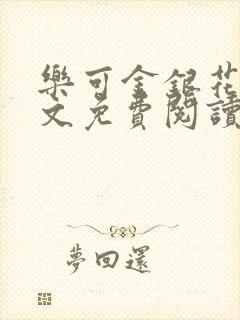 樂可金銀花
文免費閱讀
夢回還